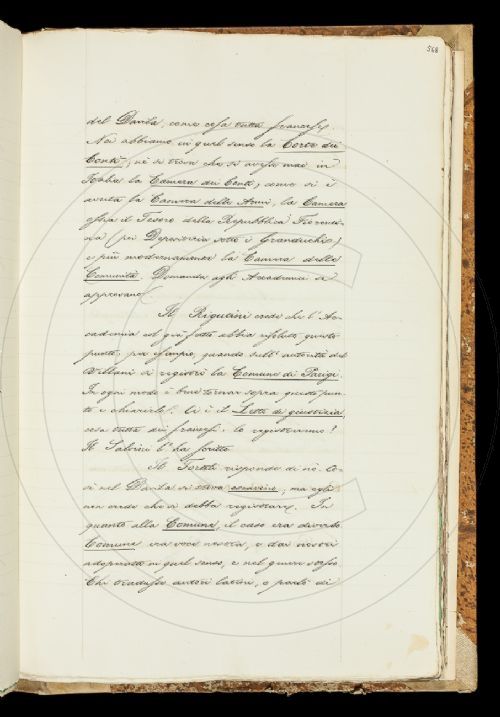 568
del Davila, come cosa tutta francese.
Noi abbiamo in quel senso la Corte dei
Conti; nè si trova che si avesse mai in
Italia la Camera dei Conti, come si è
avuta la Camera delle Armi, la Camera
ossia il Tesoro della Repubblica Fiorenti-
na (poi Depositeria sotto i Granduchi)
e più modernamente la Camera delle
Comunità. Domanda agli Accademici se
approvano.
Il Rigutini crede che l'Ac-
cademia col già fatto abbia risoluto questo
punto, per esempio, quando sull'autorità del
Villani si registrò la Comune di Parigi.
In ogni modo è bene tornar sopra questo pun-
to e chiarirlo. Ci è il Letto di giustizia
cosa tutta dei francesi: lo registreremo?
Il Salvini l'ha scritto
Il Tortoli risponde di no. Co-
sì nel Davila si trova; ma egli
non crede che si debba registrare. In
quanto alla Comune, il caso era diverso
Comune era voce nostra, e dai nostri
adoperata in quel senso, e nel genere stesso
Chi traduce autori latini, e parla di